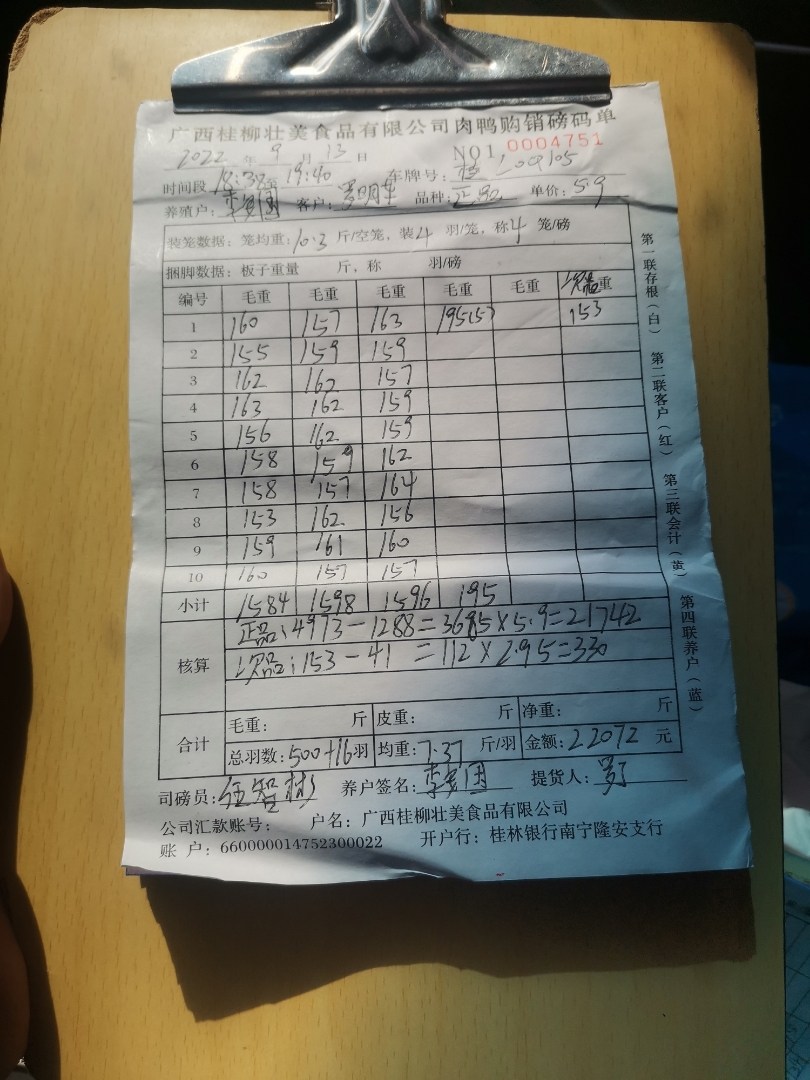 广西桂柳壮美食品有限公司肉鸭购销磅码单
2022 年 9 月 13 日 NO1, 0004751
时间段 18:38至19:40 车牌号: 桂
养殖户: 客户: 罗明东 品种: 正品 单价: 5.9
装笼数据: 笼均重: 10.3 斤/空笼, 装 4 羽/笼, 称 4 笼/磅
捆脚数据: 板子重量 斤, 称 羽/磅
编号 毛重 毛重 毛重 毛重 毛重 次品重
1 160 157 163 195 153
2 155 159 159
3 162 162 157
4 163 162 159
5 156 162 159
6 158 159 162
7 158 157 164
8 153 162 156
9 159 161 160
10 160 157 157
小计 1584 1598 1596 195
核算 正品: 4973-1288=3685×5.9=21742
次品: 153-41=112×2.95=330
合计 毛重: 斤 皮重: 斤 净重: 斤
总羽数: 500+16羽 均重: 7.37 斤/羽 金额: 22072 元
司磅员: 养户签名: 提货人:
公司汇款账号: 户名: 广西桂柳壮美食品有限公司
账 户: 660000014752300022 开户行: 桂林银行南宁隆安支行
第一联存根(白) 第二联客户(红) 第三联会计(黄) 第四联养户(蓝)